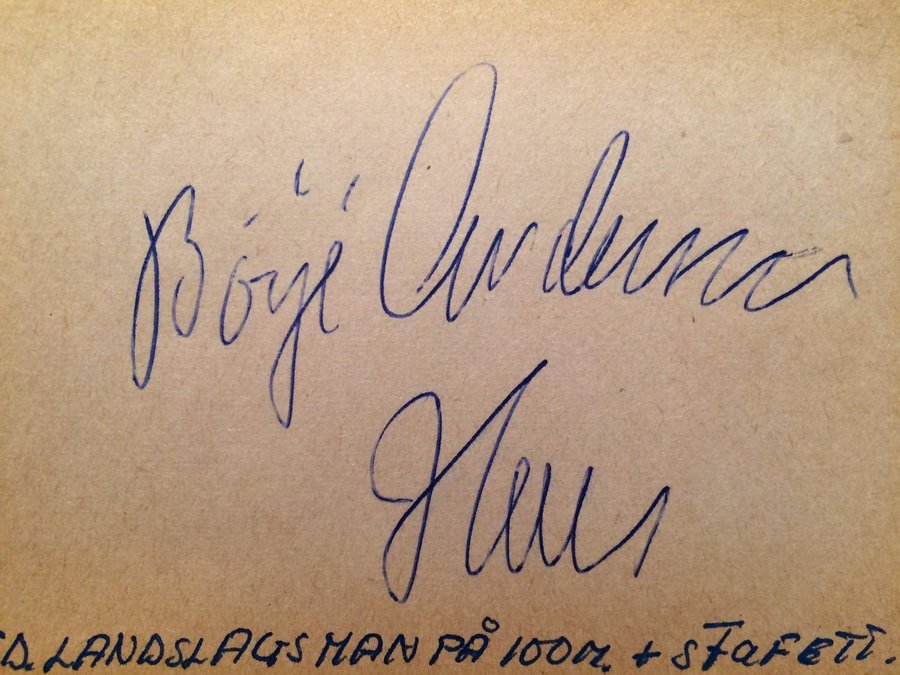 Börjé Anderson
D. LANDSLAGSMAN PÅ 100m. + STAFETT.